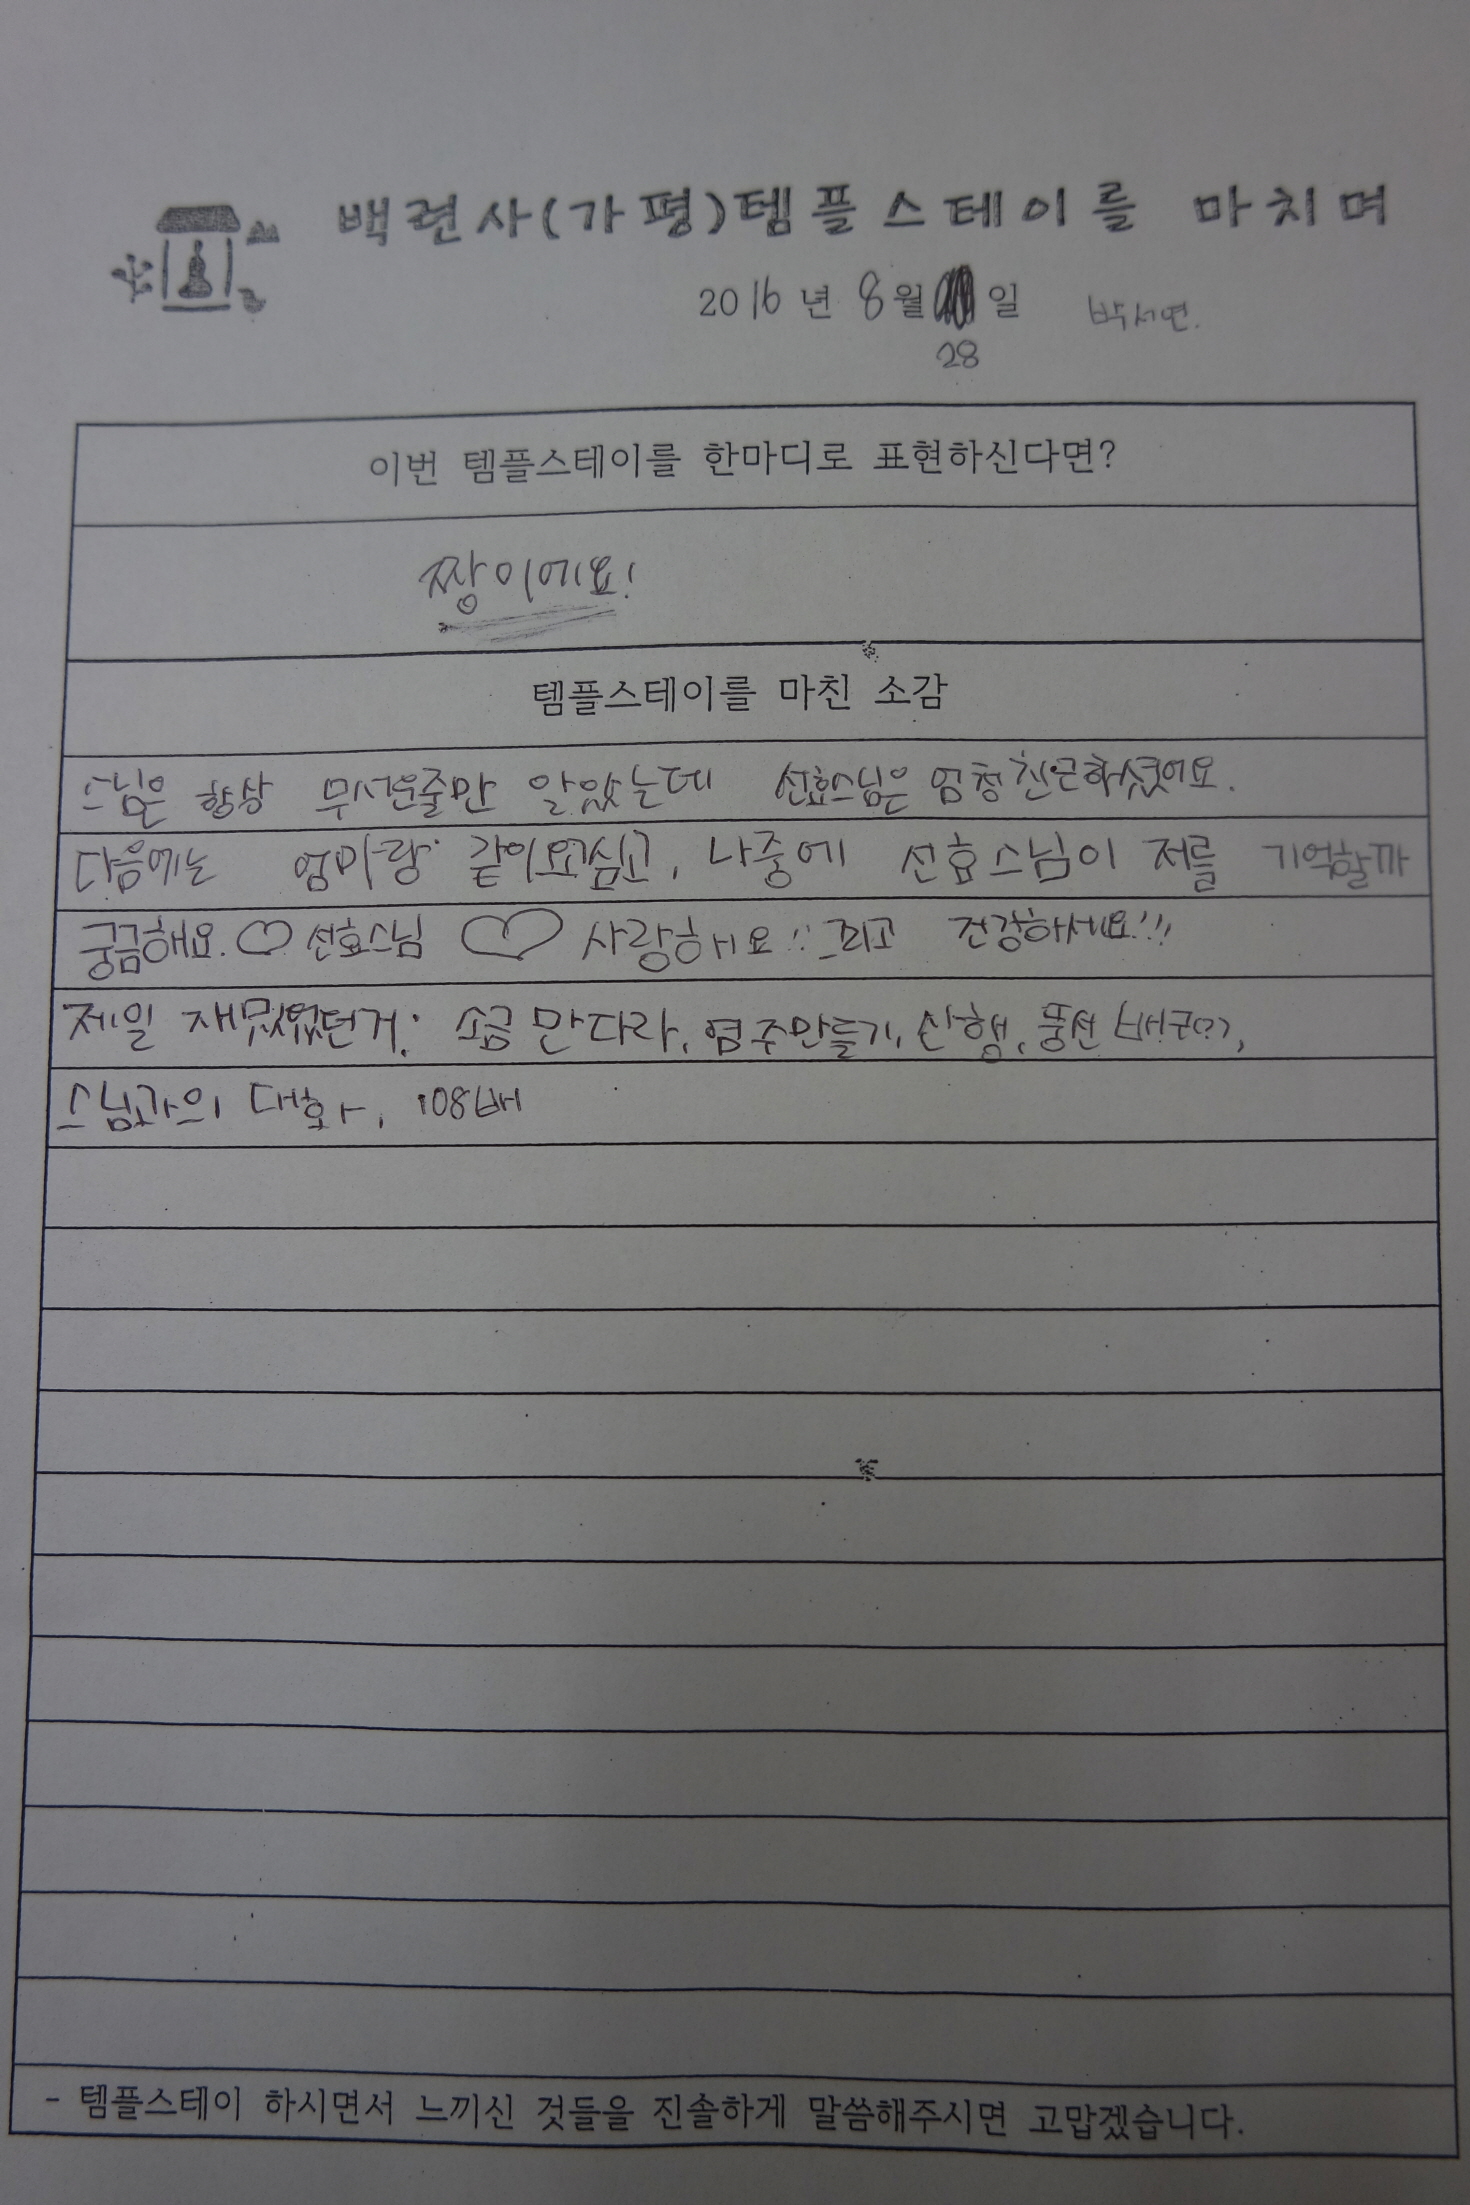 백련사(가평)템플스테이를 마치며
2016년 8월 일 박서연.
28
이번 템플스테이를 한마디로 표현하신다면?
짱이에요!
템플스테이를 마친 소감
스님은 항상 무서운줄만 알았는데 선효스님은 엄청 친근하셨어요.
다음에는 엄마랑 같이오고싶고, 나중에 선효스님이 저를 기억할까
궁금해요.♡ 선효스님 ♡ 사랑해요!! 그리고 건강하세요!!!
제일 재밌었던거: 소금 만다라, 염주만들기, 산행, 풍선 배구(?),
스님과의 대화, 108배
- 템플스테이 하시면서 느끼신 것들을 진솔하게 말씀해주시면 고맙겠습니다.